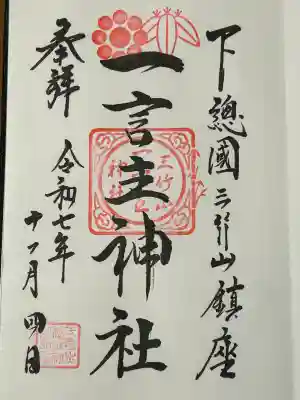 下總國三竹山鎮座
一言主神社
奉拝
令和七年
十一月四日